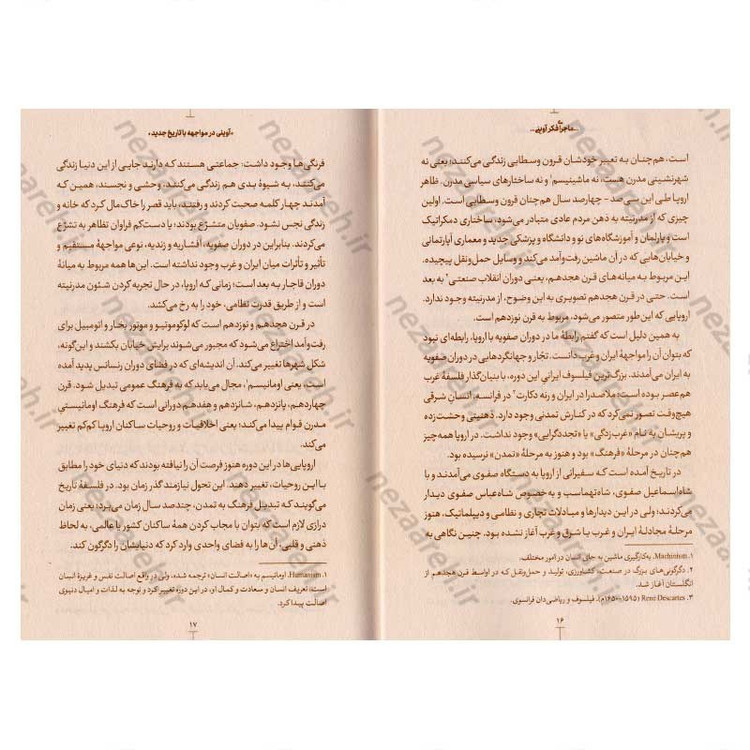 ـ ماجرا فکر آوینی ـ
است، هم‌چنان به تعبیر خودشان قرون وسطایی زندگی می‌کنند؛ یعنی نه
شهرنشینی مدرن هست، نه ماشینیسم۱ و نه ساختارهای سیاسی مدرن. ظاهر
اروپا طی این سی‌صد - چهارصد سال هم‌چنان قرون وسطایی است. اولین
چیزی که از مدرنیته به ذهن مردم عادی متبادر می‌شود، ساختاری دمکراتیک
است و پارلمان و آموزشگاه‌های نو و دانشگاه و پزشکی جدید و معماری آپارتمانی
و خیابان‌هایی که در آن ماشین رفت‌وآمد می‌کند و وسایل حمل‌ونقل پیچیده.
این مربوط به میانه‌های قرن هجدهم، یعنی دوران انقلاب صنعتی۲ به بعد
است. حتی در قرن هجدهم تصویری به این وضوح، از مدرنیته وجود ندارد.
اروپایی که این‌طور متصور می‌شود، مربوط به قرن نوزدهم است.
به همین دلیل است که گفتم رابطهٔ ما در دوران صفویه با اروپا، رابطه‌ای نبود
که بتوان آن را مواجههٔ ایران و غرب دانست. تجّار و جهانگردهایی در دوران صفویه
به ایران می‌آمدند. بزرگ‌ترین فیلسوف ایرانی این دوره، با بنیان‌گذار فلسفهٔ غرب
هم‌عصر بوده است؛ ملاصدرا در ایران و رنه دکارت۳ در فرانسه. انسان شرقی
هیچ‌وقت تصور نمی‌کرد که در کنارش تمدنی وجود دارد. ذهنیتی وحشت‌زده
و پریشان به نام «غرب‌زدگی» یا «تجددگرایی» وجود نداشت. در اروپا همه‌چیز
هم‌چنان در مرحلهٔ «فرهنگ» بود و هنوز به مرحلهٔ «تمدن» نرسیده بود.
در تاریخ آمده است که سفیرانی از اروپا به دستگاه صفوی می‌آمدند و با
شاه‌اسماعیل صفوی، شاه‌تهماسب و به‌خصوص شاه‌عباس صفوی دیدار
می‌کردند؛ ولی در این دیدارها و مبادلات تجاری و نظامی و دیپلماتیک، هنوز
مرحلهٔ مجادلهٔ ایران و غرب یا شرق و غرب آغاز نشده بود. چنین نگاهی به
۱. Machinism، به‌کارگیری ماشین به جای انسان در امور مختلف.
۲. دگرگونی‌های بزرگ در صنعت، کشاورزی، تولید و حمل‌ونقل که در اواسط قرن هجدهم از
انگلستان آغاز شد.
۳. René Descartes (۱۵۹۵-۱۶۵۰م)، فیلسوف و ریاضی‌دان فرانسوی.
۱۶
«آوینی در مواجهه با تاریخ جدید»
فرنگی‌ها وجود داشت: جماعتی هستند که دارند جایی از این دنیا زندگی
می‌کنند، به شیوهٔ بدی هم زندگی می‌کنند، وحشی و نجسند، همین که
آمدند چهار کلمه صحبت کردند و رفتند، باید قصر را خاک‌مال کرد که خانه و
زندگی نجس نشود. صفویان متشرّع بودند؛ یا دست‌کم فراوان تظاهر به تشرّع
می‌کردند. بنابراین در دوران صفویه، افشاریه و زندیه، نوعی مواجههٔ مستقیم و
تأثیر و تأثرات میان ایران و غرب وجود نداشته است. این‌ها همه مربوط به میانهٔ
دوران قاجار به بعد است؛ زمانی که اروپا، در حال تجربه کردن شئون مدرنیته
است و از طریق قدرت نظامی، خود را به رخ می‌کشد.
در قرن هجدهم و نوزدهم است که لوکوموتیو و موتور بخار و اتومبیل برای
رفت‌وآمد اختراع می‌شود که مجبور می‌شوند برایش خیابان بکشند و این‌گونه،
شکل شهرها تغییر می‌کند. آن اندیشه‌ای که در فضای دوران رنسانس پدید آمده
است، یعنی اومانیسم۱، مجال می‌یابد که به فرهنگ عمومی تبدیل شود. قرن
چهاردهم، پانزدهم، شانزدهم و هفدهم دورانی است که فرهنگ اومانیستی
مدرن قوام پیدا می‌کند؛ یعنی اخلاقیات و روحیات ساکنان اروپا کم‌کم تغییر
می‌کند.
اروپایی‌ها در این دوره هنوز فرصت آن را نیافته بودند که دنیای خود را مطابق
با این روحیات، تغییر دهند. این تحول نیازمند گذر زمان بود. در فلسفهٔ تاریخ
می‌گویند که تبدیل فرهنگ به تمدن، چندصد سال زمان می‌برد؛ یعنی زمان
درازی لازم است که بتوان با مجاب کردن همهٔ ساکنان کشور یا عالمی، به لحاظ
ذهنی و قلبی، آن‌ها را به فضای واحدی وارد کرد که دنیایشان را دگرگون کند.
۱. Humanism، اومانیسم به «اصالت انسان» ترجمه شده، ولی در واقع اصالت نفس و غریزهٔ انسان
است. تعریف انسان و سعادت و کمال او، در این دوره تغییر کرد و توجه به لذات و امیال دنیوی
اصالت پیدا کرد.
۱۷
nezaareh.ir